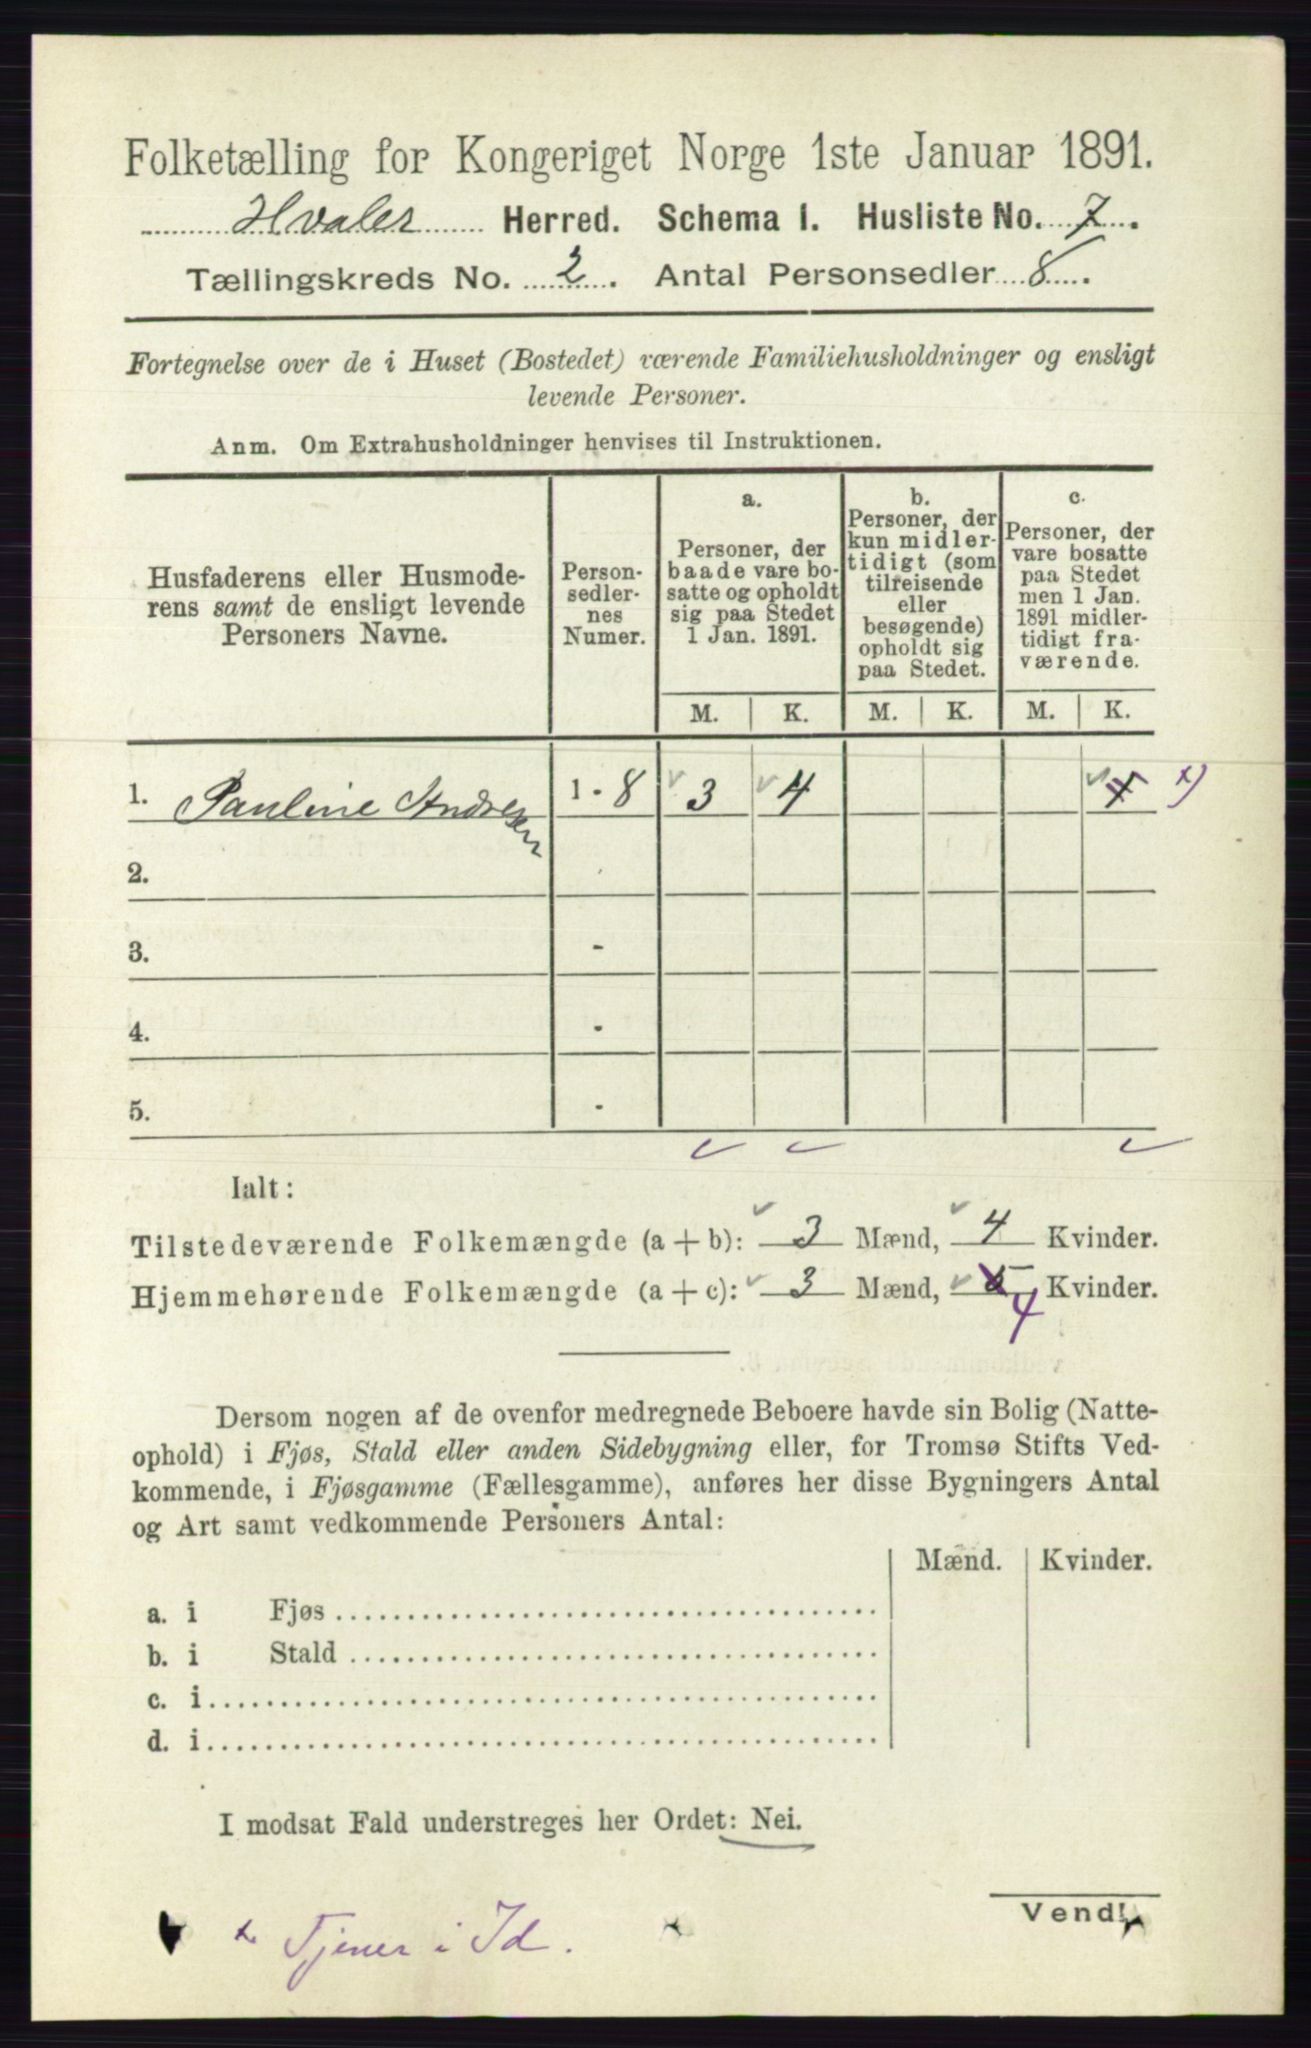 Folketælling for Kongeriget Norge 1ste Januar 1891.
Hvaler Herred. Schema 1. Husliste No. 7.
Tællingskreds No. 2. Antal Personsedler 8.
Fortegnelse over de i Huset (Bostedet) værende Familiehusholdninger og ensligt
levende Personer.
Anm. Om Extrahusholdninger henvises til Instruktionen.
Husfaderens eller Husmode-
rens samt de ensligt levende
Personers Navne.
Person-
sedler-
nes
Numer.
a.
Personer, der
baade vare bo-
satte og opholdt
sig paa Stedet
1 Jan. 1891.
b.
Personer, der
kun midler-
tidigt (som
tilreisende
eller
besøgende)
opholdt sig
paa Stedet.
c.
Personer, der
vare bosatte
paa Stedet
men 1 Jan.
1891 midler-
tidigt fra-
værende.
M. K. M. K. M. K.
1. Pauline Andresen 1 - 8 3 4 1 x)
2.
3. -
4. -
5. -
Ialt:
Tilstedeværende Folkemængde (a + b): 3 Mænd, 4 Kvinder.
Hjemmehørende Folkemængde (a + c): 3 Mænd, 5 Kvinder.
4
Dersom nogen af de ovenfor medregnede Beboere havde sin Bolig (Natte-
ophold) i Fjøs, Stald eller anden Sidebygning eller, for Tromsø Stifts Ved-
kommende, i Fjøsgamme (Fællesgamme), anføres her disse Bygningers Antal
og Art samt vedkommende Personers Antal:
Mænd. Kvinder.
a. i Fjøs
b. i Stald
c. i
d. i
I modsat Fald understreges her Ordet: Nei.
Vend!
x Tjener i Id.